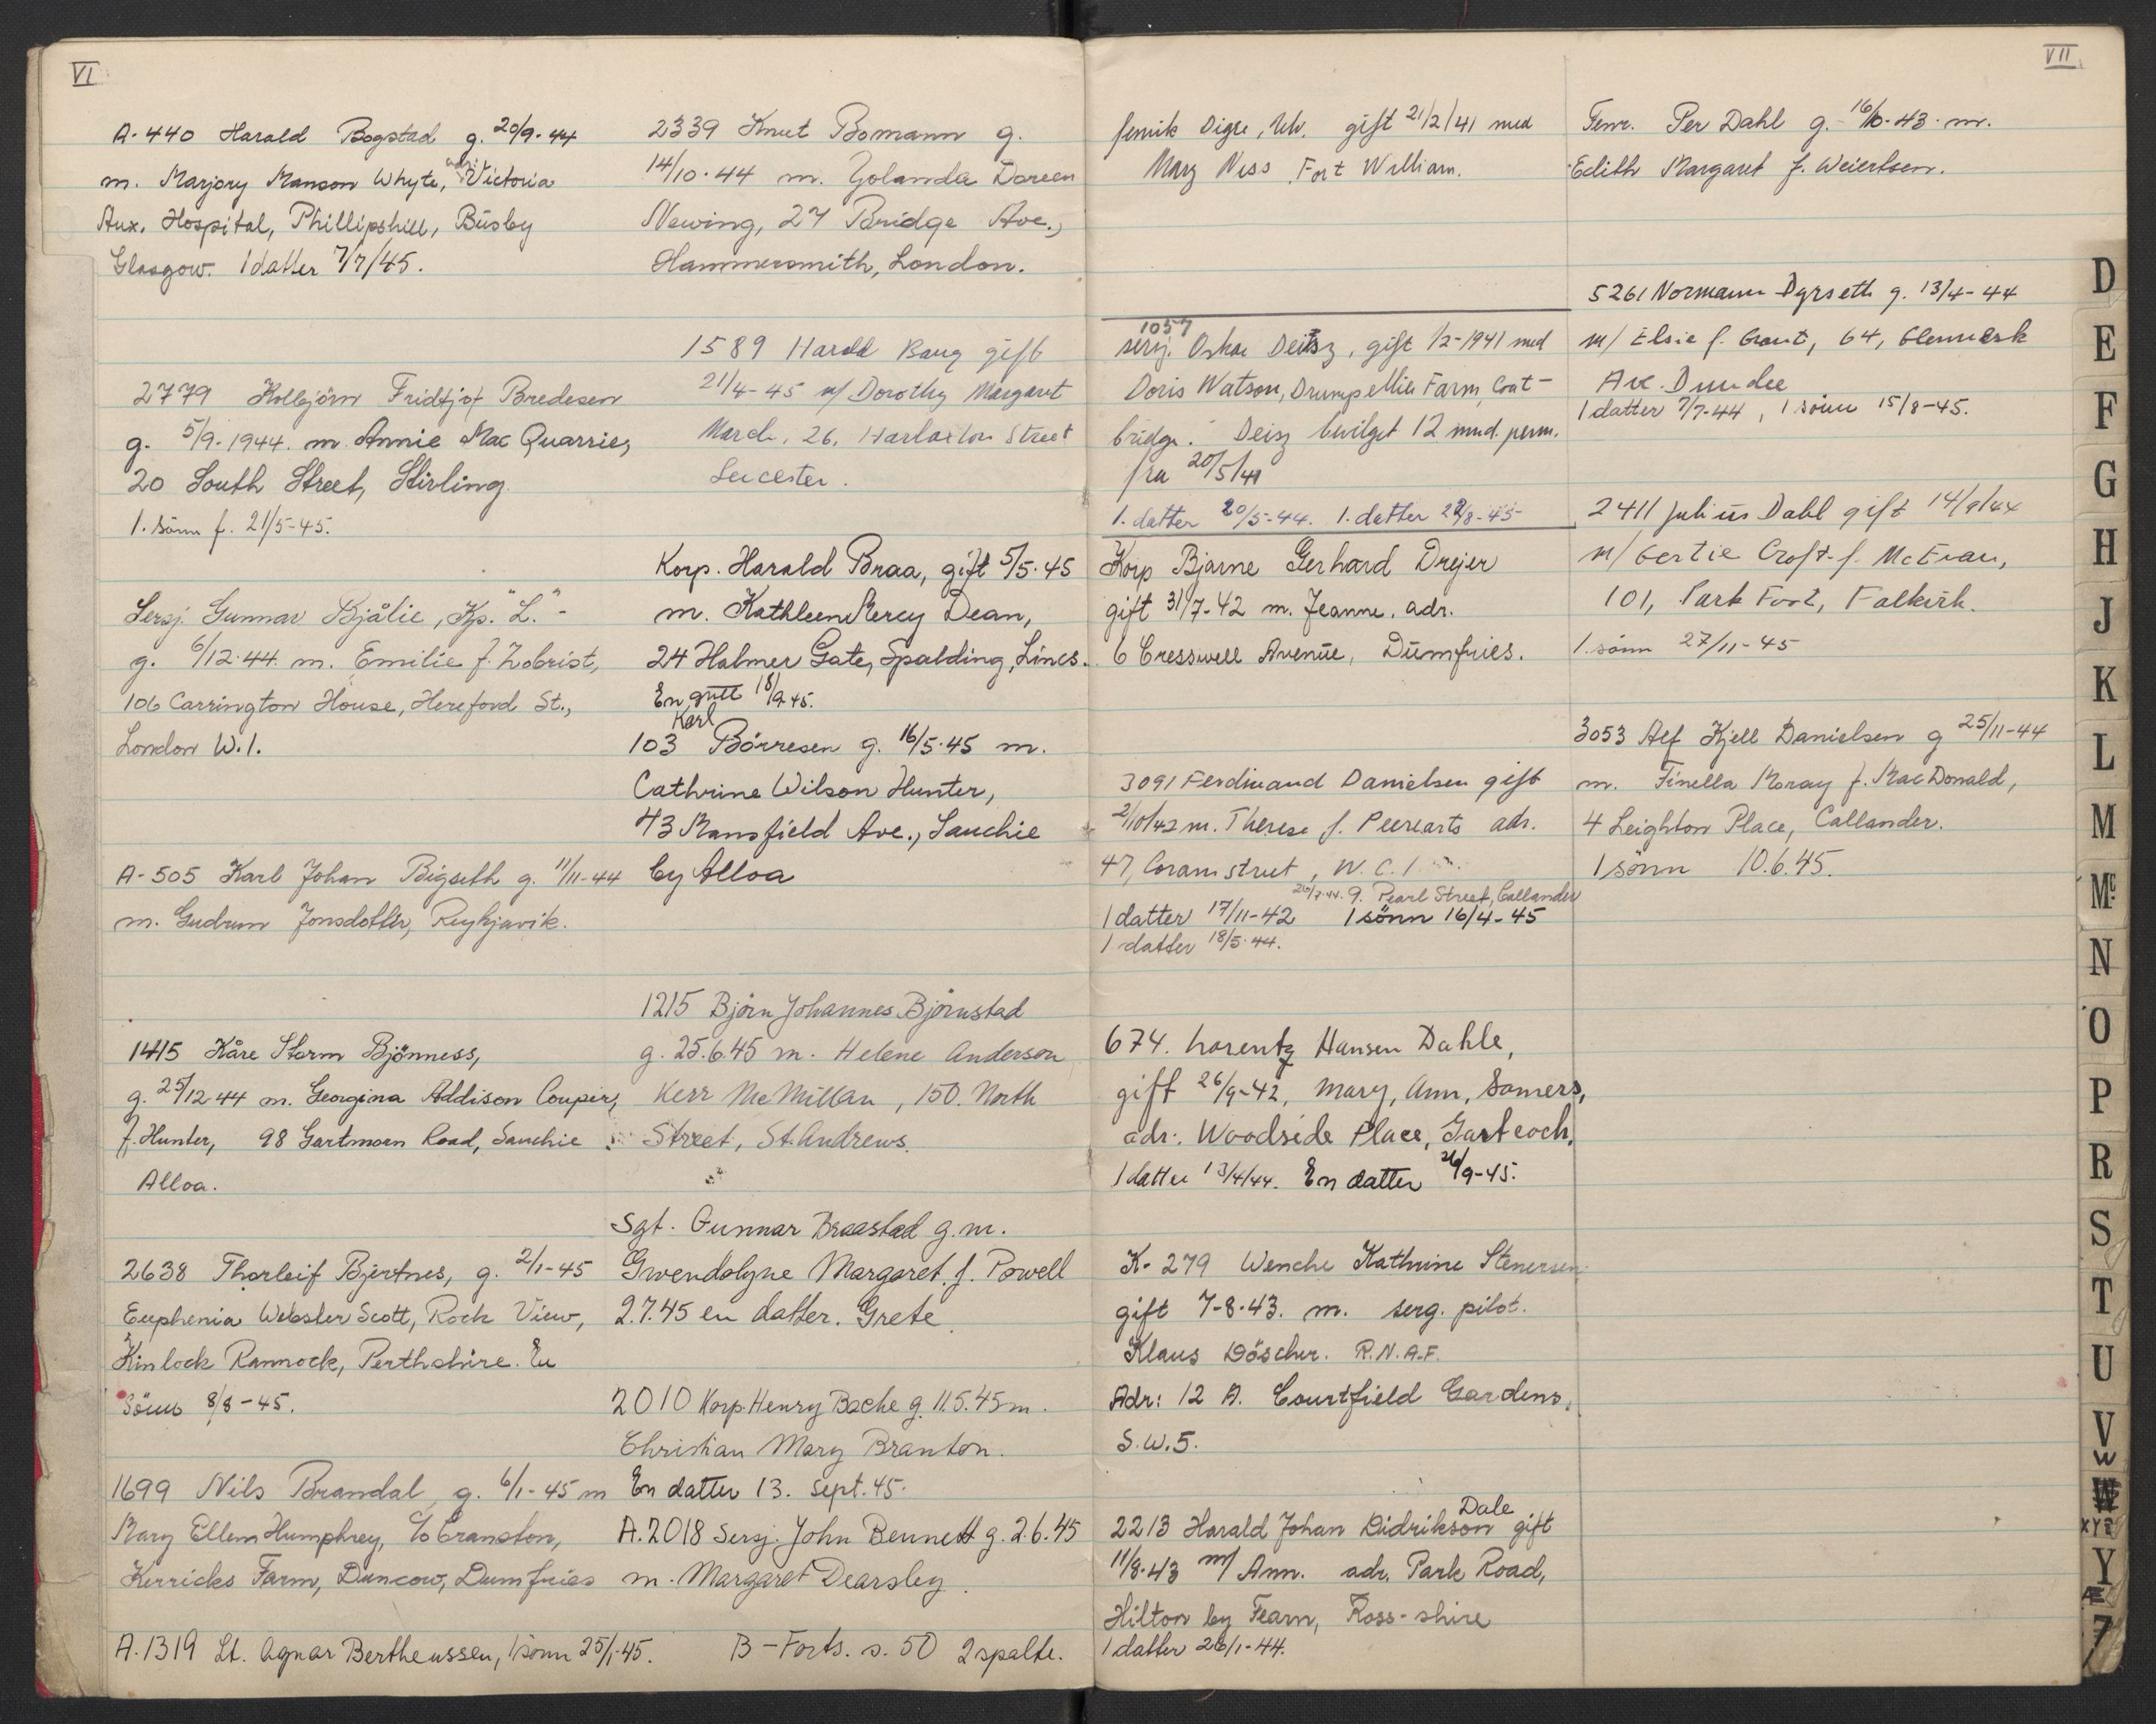 VI
A-440 Harald Bogstad g. 20/9-44
m. Marjory Manson Whyte, adr: Victoria
Aux. Hospital, Phillipshill, Busby
Glasgow. 1 datter 7/7/45.
2779 Kolbjörn Fridtjof Bredesen
g. 5/9-1944. m. Annie Mac Quarrie,
20 South Street, Stirling.
1. sönn f. 21/5-45.
Sersj. Gunnar Bjålie, Kp. "L." -
g. 6/12-44. m. Emilie f. Zobrist,
106 Carrington House, Hereford St.,
London W.1.
A-505 Karl Johan Bigseth g. 11/11-44
m. Gudrun Jonsdotter, Reykjavik.
1415 Kåre Storm Bjönness,
g. 25/12 44 m. Georgina Addison Couper,
f. Hunter, 98 Gartmorn Road, Sauchie
Alloa.
2638 Thorleif Bjertnes, g. 2/1-45
Euphenia Webster Scott, Rock View,
Kinlock Rannock, Perthshire. En
Sönn 8/8-45.
1699 Nils Brandal, g. 6/1-45 m
Mary Ellen Humphrey, c/o Cranston,
Kerricks Farm, Duncow, Dumfries
A.1319 Lt. Agnar Bertheussen, 1 sönn 25/1-45.
2339 Knut Bomann g.
14/10-44 m. Yolanda Doreen
Newing, 27 Bridge Ave.,
Hammersmith, London.
1589 Harald Baug gift
21/4-45 m/ Dorothy Margaret
March, 26, Harlaxton Street
Leicester.
Korp. Harald Braa, gift 5/5-45
m. Kathleen Mercy Dean,
24 Halmer Gate, Spalding, Lincs.
En gutt 18/9 45.
Karl
103 Börresen g. 16/5-45 m.
Cathrine Wilson Hunter,
43 Mansfield Ave., Sauchie
by Alloa
1215 Björn Johannes Björnstad
g. 25.6.45 m. Helene Anderson
Kerr McMillan, 150. North
Street, St. Andrews.
Sgt. Gunnar Braastad g. m.
Gwendolyne Margaret f. Powell
2.7.45 en datter. Grete
2010 Korp. Henry Bache g. 11.5.45 m.
Christian Mary Branton.
En datter 13. Sept. 45.
A.2018 Sersj. John Bennett g. 2.6.45
m. Margaret Dearsley.
B - Forts. s. 50 2 spalte.
VII
fenrik Digre, gift 21/2/41 med
Mary Niss, Fort William.
1057
serg. Oskar Deisz, gift 1/2-1941 med
Doris Watson, Drumpellier Farm, Coat-
bridge. Deisz bevilget 12 mnd. perm.
fra 20/5/41
1. datter 20/5-44. 1. datter 22/8-45
Korp Bjarne Gerhard Drejer
gift 31/7-42 m. Jeanne. adr.
6 Cresswell Avenue, Dumfries.
3091 Ferdinand Danielsen gift
2/10/42 m. Therese f. Peerearts adr.
47, Coram street, W.C.1
26/7-44. 9. Pearl Street, Callander
1 datter 17/11-42 1 sönn 16/4-45
1 datter 18/5-44.
674. Lorentz Hansen Dahle,
gift 26/9-42, Mary, Ann, Somers,
adr: Woodside Place, Gartcoch.
1 datter 13/4/44. En datter 26/9-45.
K-279 Wenche Kathrine Stenersen
gift 7-8-43. m. serg. pilot.
Klaus Döscher. R.N.A.F.
Adr: 12 A. Courtfield Gardens,
S.W.5.
Dale
2213 Harald Johan Didrikson gift
11/8-43 m/ Ann. adr. Park Road,
Hilton by Fearn, Ross-shire
1 datter 26/1-44.
Fenr. Per Dahl g. 16/10-43. m.
Edith Margaret f. Weiertsen.
5261 Normann Dyrseth g. 13/4-44
m/ Elsie f. Grant, 64, Glenesk
Ave. Dundee
1 datter 7/7-44, 1 sönn 15/8-45.
2411 Julius Dahl gift 14/9/44
m/ Gertie Croft f. McEwan,
101, Park Foot, Falkirk.
1. sönn 27/11-45
3053 Alf Kjell Danielsen g 25/11-44
m. Finella Moray f. MacDonald,
4 Leighton Place, Callander.
1 sönn 10.6.45.
D
E
F
G
H
J
K
L
M
Mc
N
O
P
R
S
T
U
V
W
W
XYZ
Y
Æ